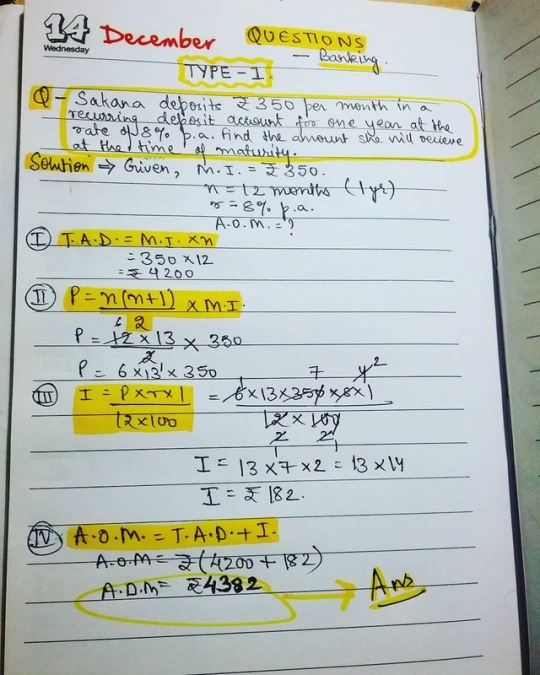 14 December QUESTIONS
Wednesday
— Banking.
TYPE-I
Q- Sakana deposits ₹350 per month in a
recurring deposit account for one year at the
rate of 8% p.a. Find the amount she will recieve
at the time of maturity.
Solution ⇒ Given, M.I. = ₹350.
n = 12 months (1 yr)
r = 8% p.a.
A.O.M. = ?
I T.A.D. = M.I. × n
= 350 × 12
= ₹ 4200
II P = n(n+1)/2 × M.I.
P = 12 × 13/2 × 350
6
P = 6 × 13 × 350
III I = P×r×1/12×100 = 6×13×350×8×1/12×100
7 4 2
2 2
I = 13 × 7 × 2 = 13 × 14
I = ₹ 182.
IV A.O.M. = T.A.D. + I.
A.O.M = ₹(4200 + 182)
A.O.M = ₹4382 → Ans